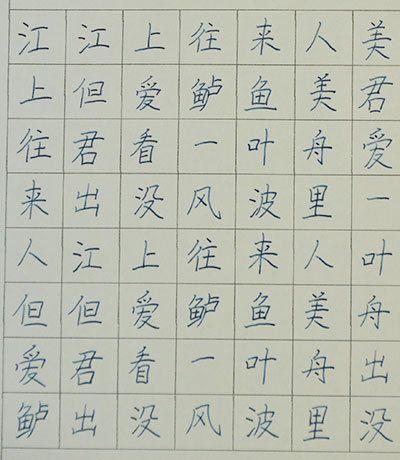 江江上往来人美
上但爱鲈鱼美君
往君看一叶舟爱
来出没风波里一
人江上往来人叶
但但爱鲈鱼美舟
爱君看一叶舟出
鲈出没风波里没